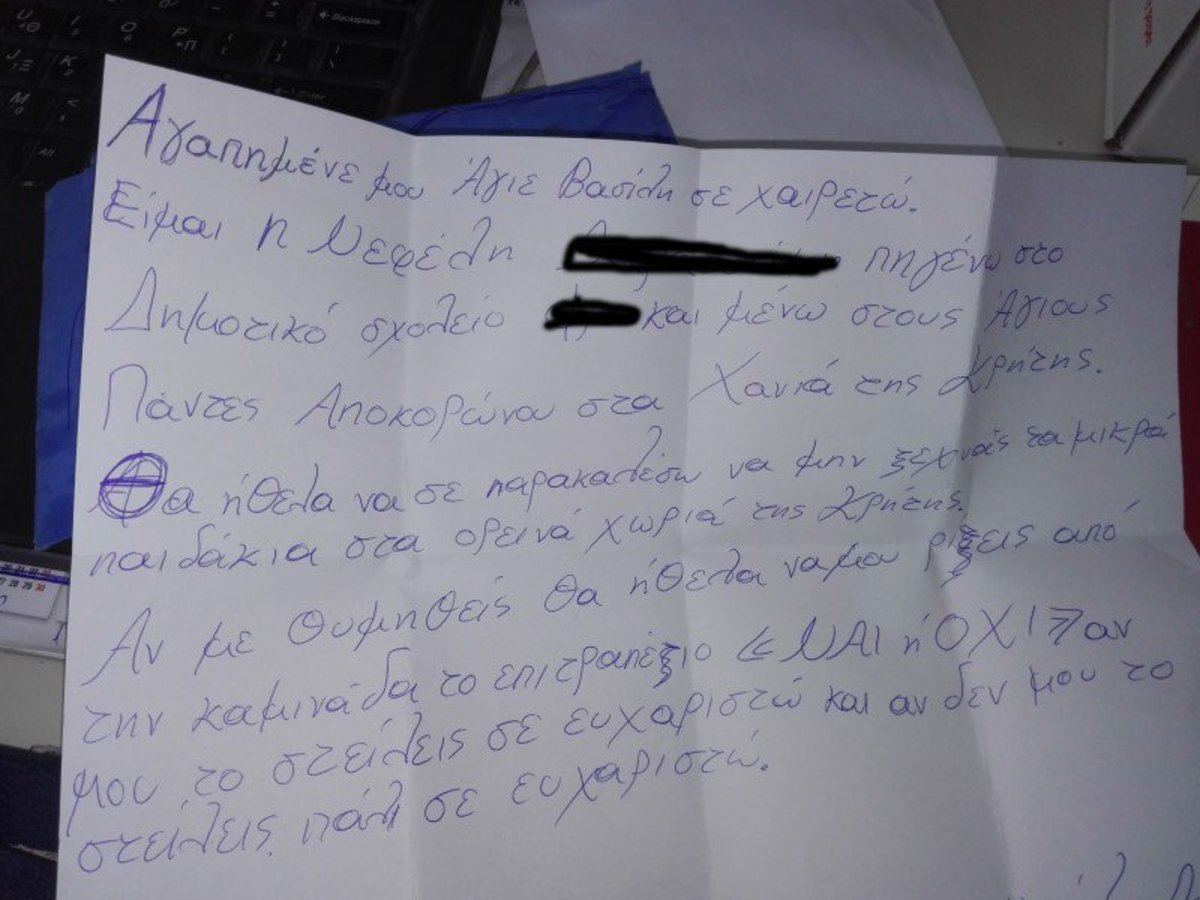 Backspace
Αγαπημένε μου Άγιε Βασίλη σε χαιρετώ.
Είμαι η Νεφέλη πηγένω στο
Δημοτικό σχολείο και μένω στους Άγιους
Πάντες Αποκορώνου στα Χανιά της Κρήτης.
Θα ήθελα να σε παρακαλέσω να μην ξεχνάς τα μικρά
παιδάκια στα ορεινά χωριά της Κρήτης.
Αν με θυμηθείς θα ήθελα να μου ρίξεις από
την καμινάδα το επιτραπέζιο <<ΝΑΙ ή ΟΧΙ>> αν
μου το στείλεις σε ευχαριστώ και αν δεν μου το
στείλεις πάλι σε ευχαριστώ.